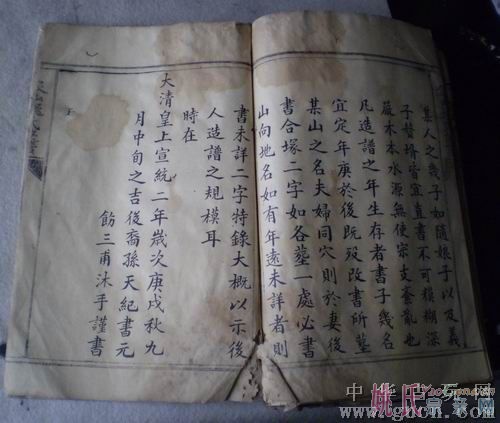 某人之幾子如隨娘子以及義
子贅婿皆宜直書不可模糊深
嚴木本水源無使宗支紊亂也
凡造譜之年生存者書子幾名
宜定年庚於後既歿改書所塟
某山之名夫婦同穴則於妻後
書合塚二字如各塟一處必書
山向地名如有年遠未詳者則
書未詳二字特錄大概以示後
人造譜之規模耳
時在
大清皇上宣統二年歲次庚戌秋九
月中旬之吉後裔孫天紀書元
飭三甫沐手謹書
中华古玉网
姚氏宗親网
www.gucn.com